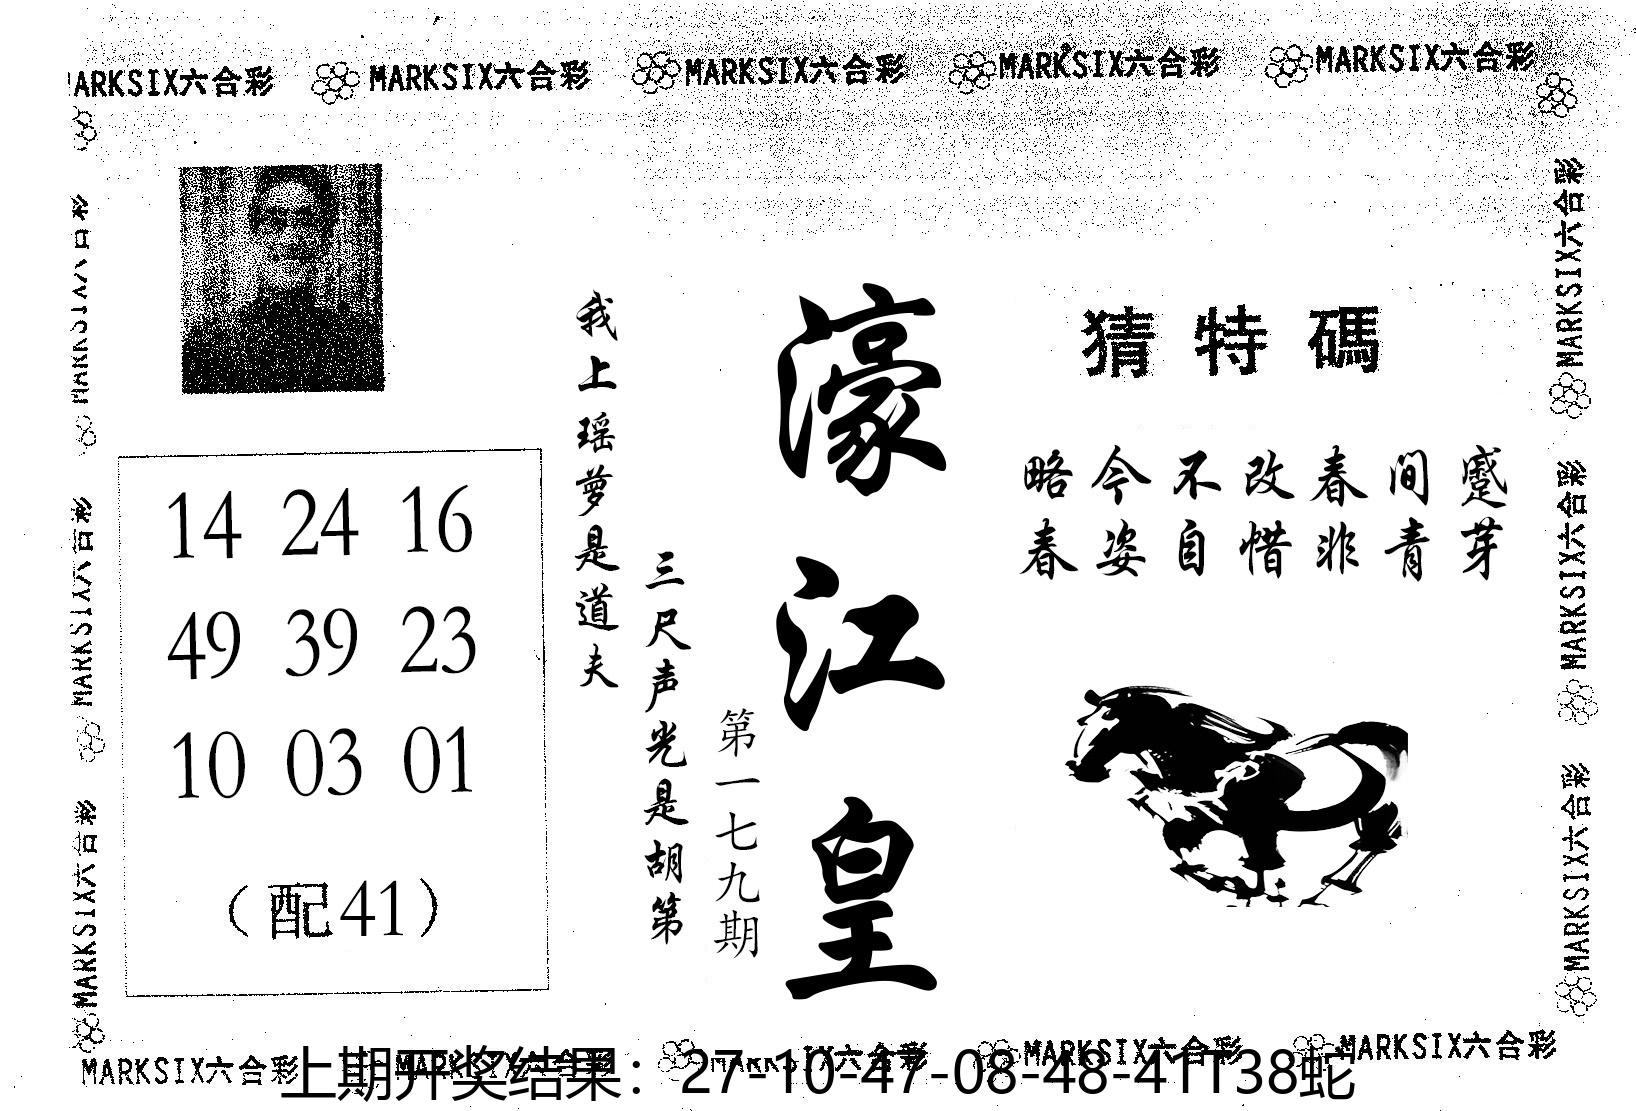 MARKSIX六合彩 MARKSIX六合彩 MARKSIX六合彩 MARKSIX六合彩 MARKSIX六合彩
猜特碼
略今不改春间蹙
春姿自惜非青芽
濠江皇
第一七九期
三尺声光是胡第
我上瑶萝是道夫
14 24 16
49 39 23
10 03 01
(配41)
MARKSIX六合彩
MARKSIX六合彩
MARKSIX六合彩
MARKSIX六合彩
MARKSIX六合彩
MARKSIX六合彩
MARKSIX六合彩 MARKSIX六合彩 MARKSIX六合彩 MARKSIX六合彩 MARKSIX六合彩
上期开奖结果：27-10-47-08-48-41T38蛇